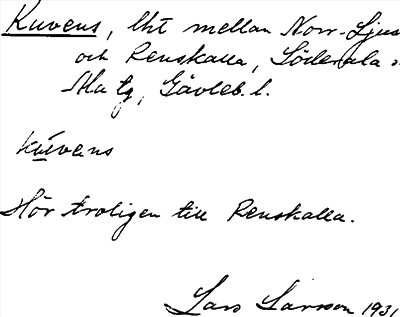 Kuvens, lht mellan Norr-Ljus
och Renskalla, Söderala s
Ala tg, Gävleb. l.
kúvens
Hör troligen till Renskalla.
Lars Larsson 1931